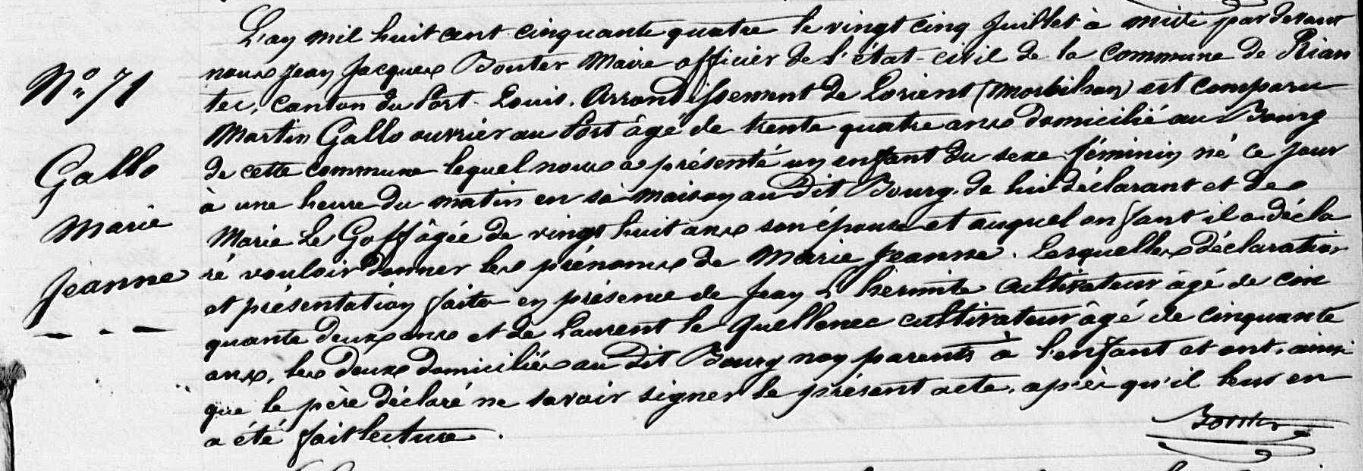 L'an mil huit cent cinquante quatre le vingt cinq Juillet à midi pardevant
nous Jean Jacques Bouter Maire officier de l'état-civil de la commune de Rian
N° 71
tec, canton du Port-Louis. Arrondissement de Lorient (Morbihan) est comparu
Martin Gallo ouvrier au Port âgé de trente quatre ans domicilié au Bourg
Gallo
de cette commune lequel nous a présenté un enfant du sexe féminin né ce jour
à une heure du matin en sa maison au dit Bourg, de lui déclarant et de
Marie
Marie Le Goff âgée de vingt huit ans son épouse et auquel enfant il a décla
ré vouloir donner les prénoms de Marie Jeanne. Lesquelles déclaration
Jeanne
et présentation faite en présence de Jean L'hermite cultivateur âgé de cin
quante deux ans et de Laurent le Quellenec cultivateur âgé de cinquante
ans, les deux domiciliés au dit Bourg non parents à l'enfant et ont, ainsi
que le père déclaré ne savoir signer le présent acte, après qu'il leur en
a été fait lecture.
Bouter